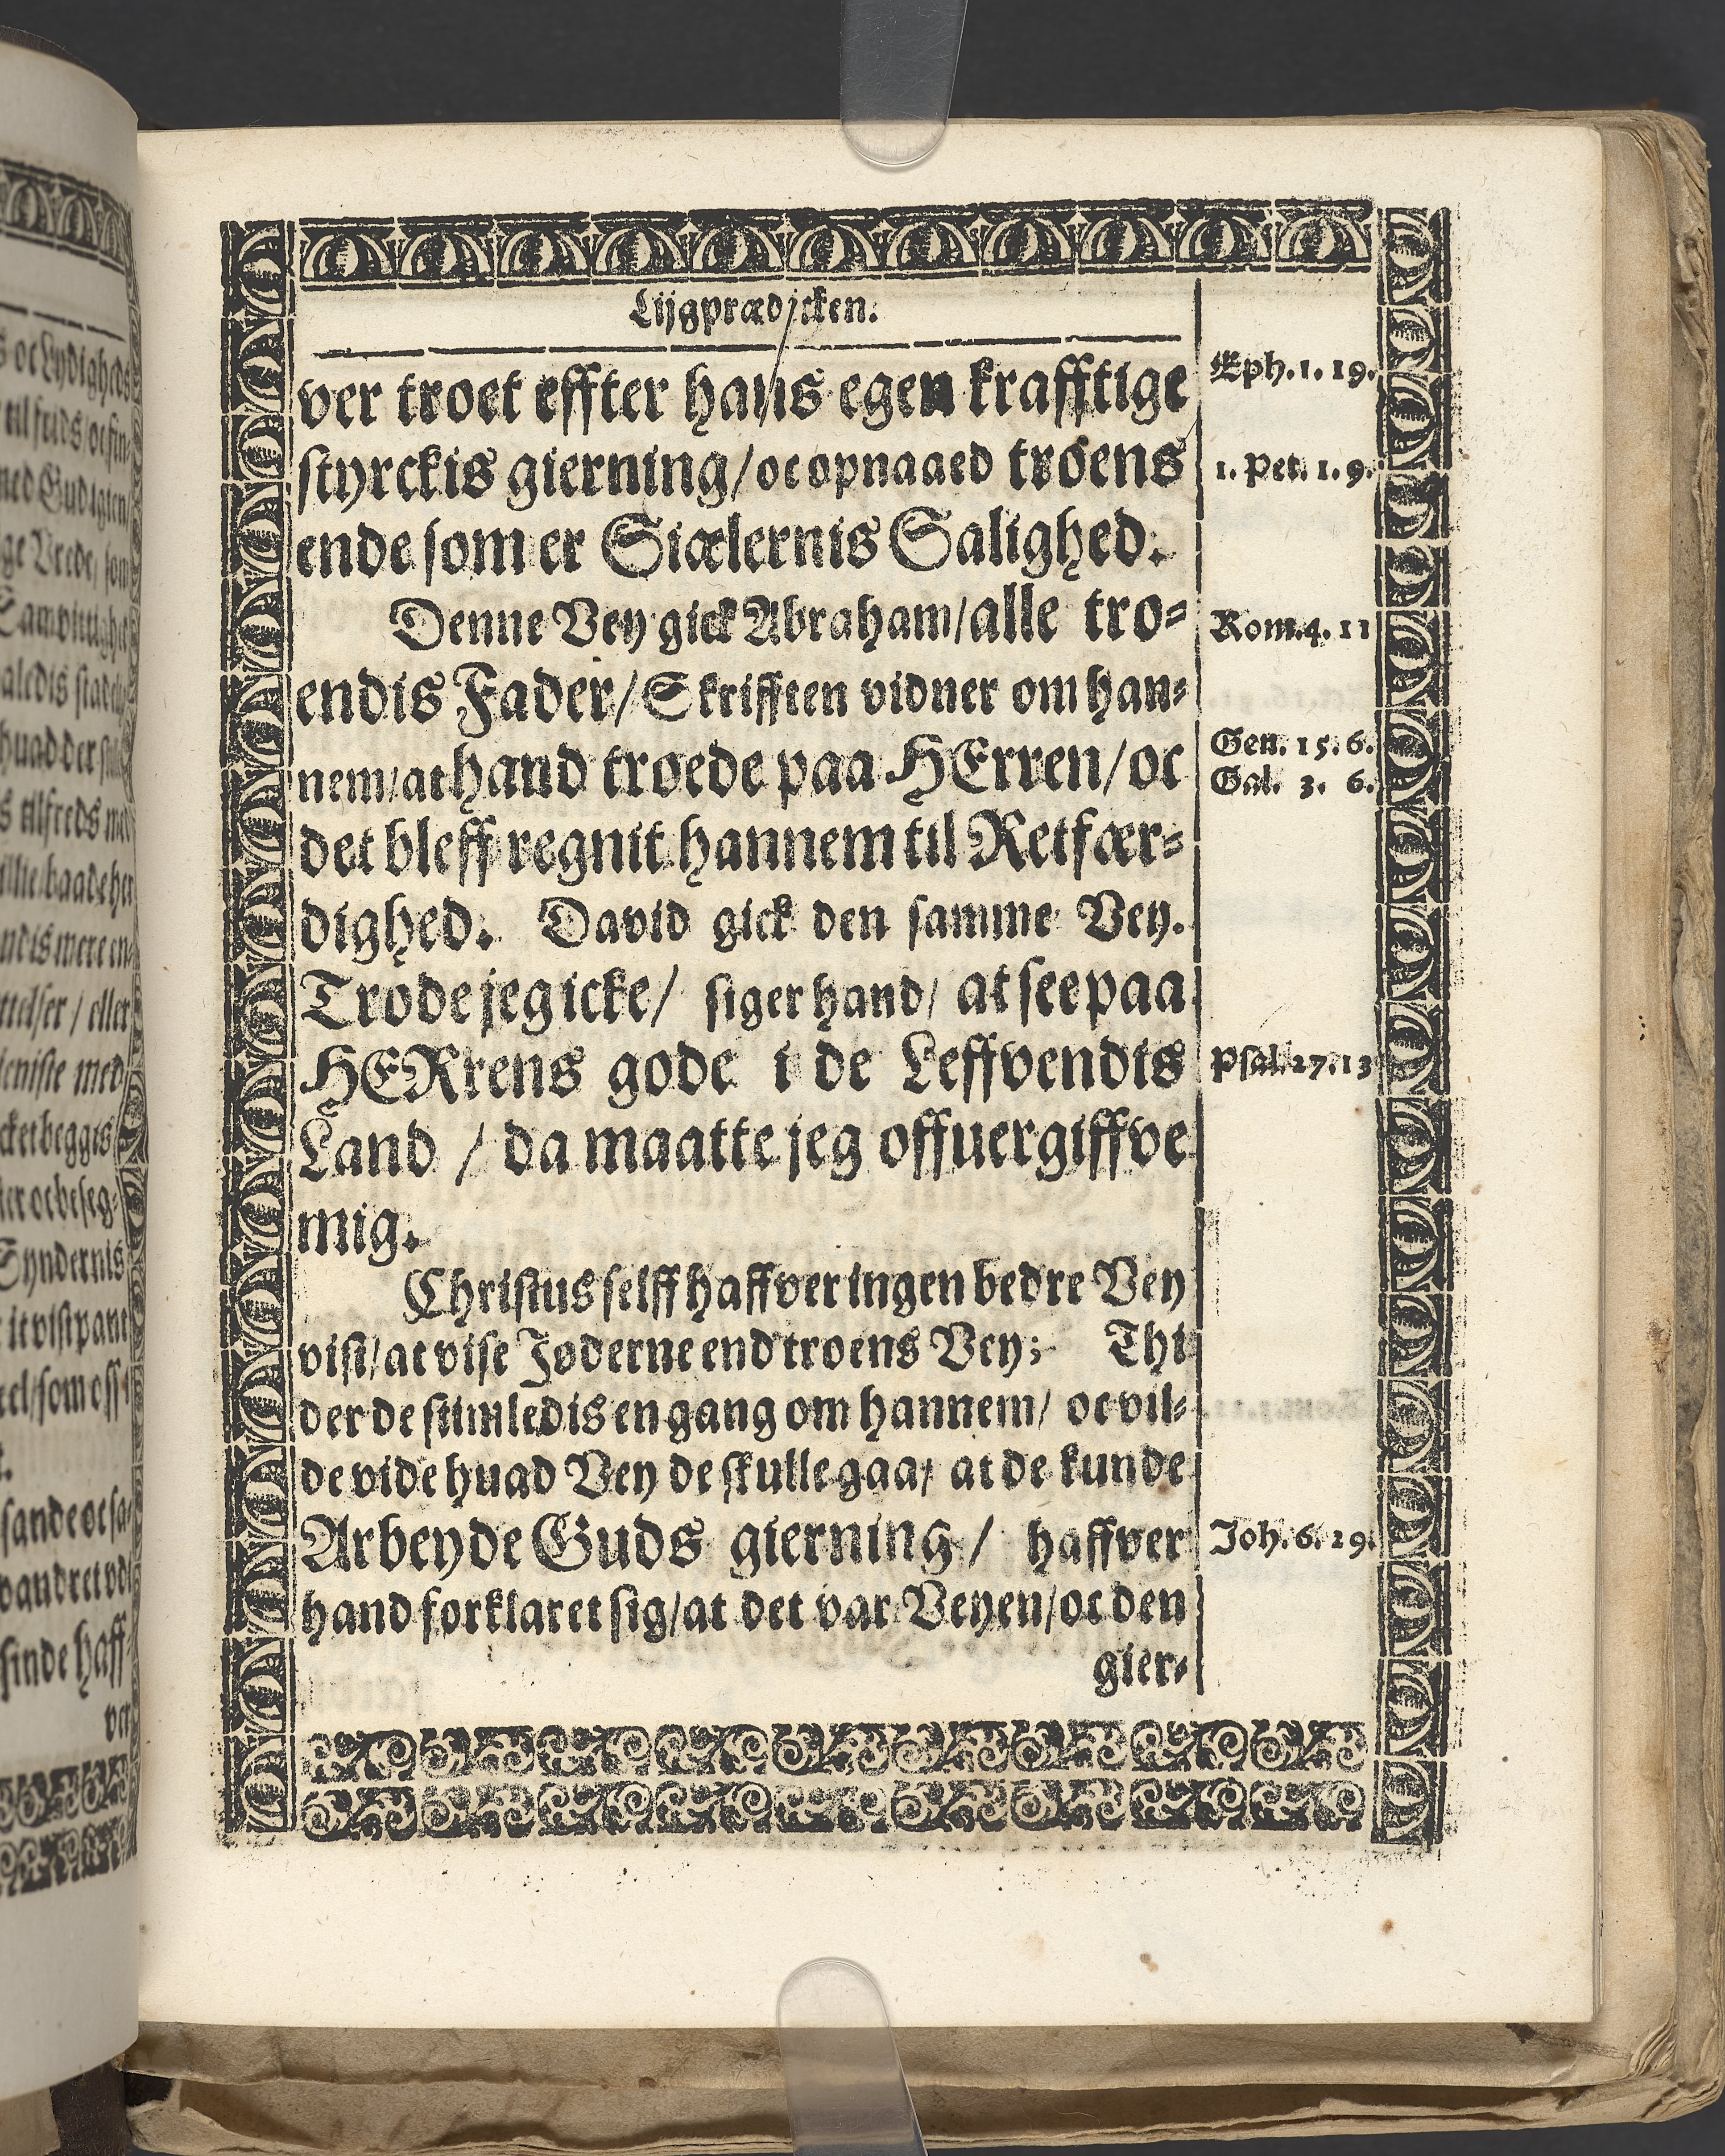 Lijgprædicken.
ver troet effter hans egen krafftige
styrckis gierning/ oc opnaaed troens
ende som er Siælernis Salighed.
Denne Vey gick Abraham/ alle tro-
endis Fader/ Skrifften vidner om han-
nem/ at hand troede paa HErren/ oc
det bleff regnit hannem til Retfær-
dighed. David gick den samme Vey.
Trode jeg icke/ siger hand/ at see paa
HERrens gode i de Leffvendis
Land / da maatte jeg offuergiffve
mig.
Christus selff haffver ingen bedre Vey
vist/ at vise Joderne end troens Vey; Thi
der de stimledis en gang om hannem/ oc vil-
de vide huad Vey de skulle gaa/ at de kunde
Arbeyde Guds gierning / haffver
hand forklaret sig/ at det var Veyen/ oc den
gier-
Eph. 1. 19.
1. Pet. 1. 9.
Rom. 4. 11
Gen. 15. 6.
Gal. 3. 6.
Psal. 27. 13
Joh. 6. 29.